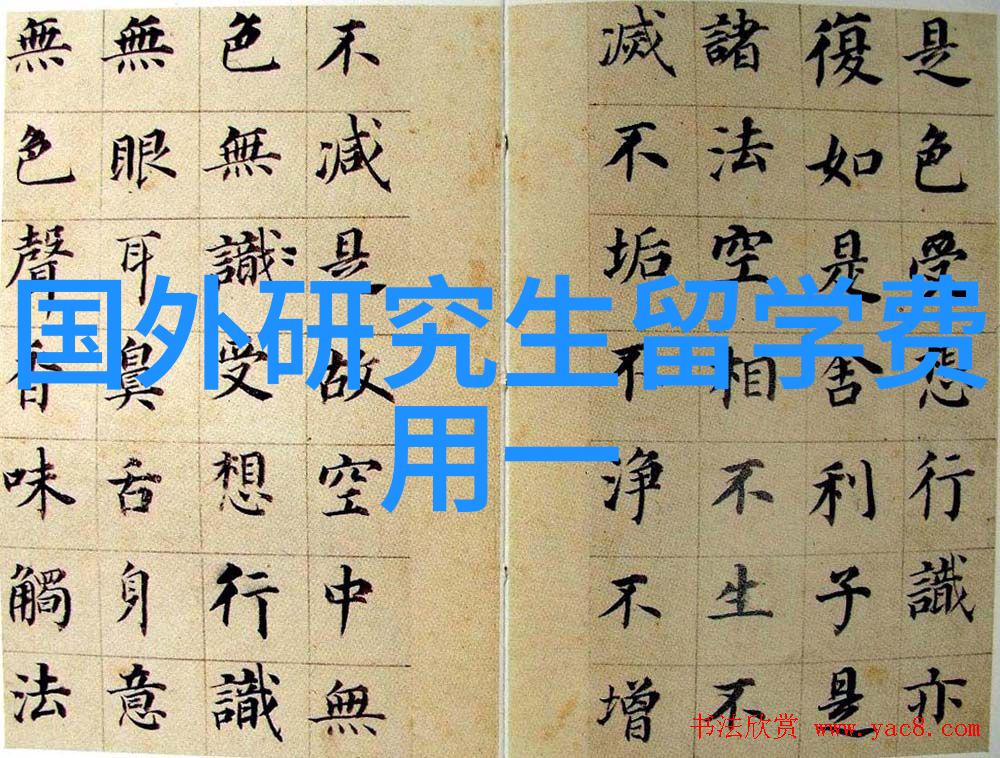 国外研究生留学费
用一
是色受想行識亦
復如是舍利子是
諸法空相不生不
滅不垢不浄不增
不減是故空中無
色無識受想行識
無眼耳鼻舌身意
無色聲香味觸法
书法欣赏 www.yac8.com